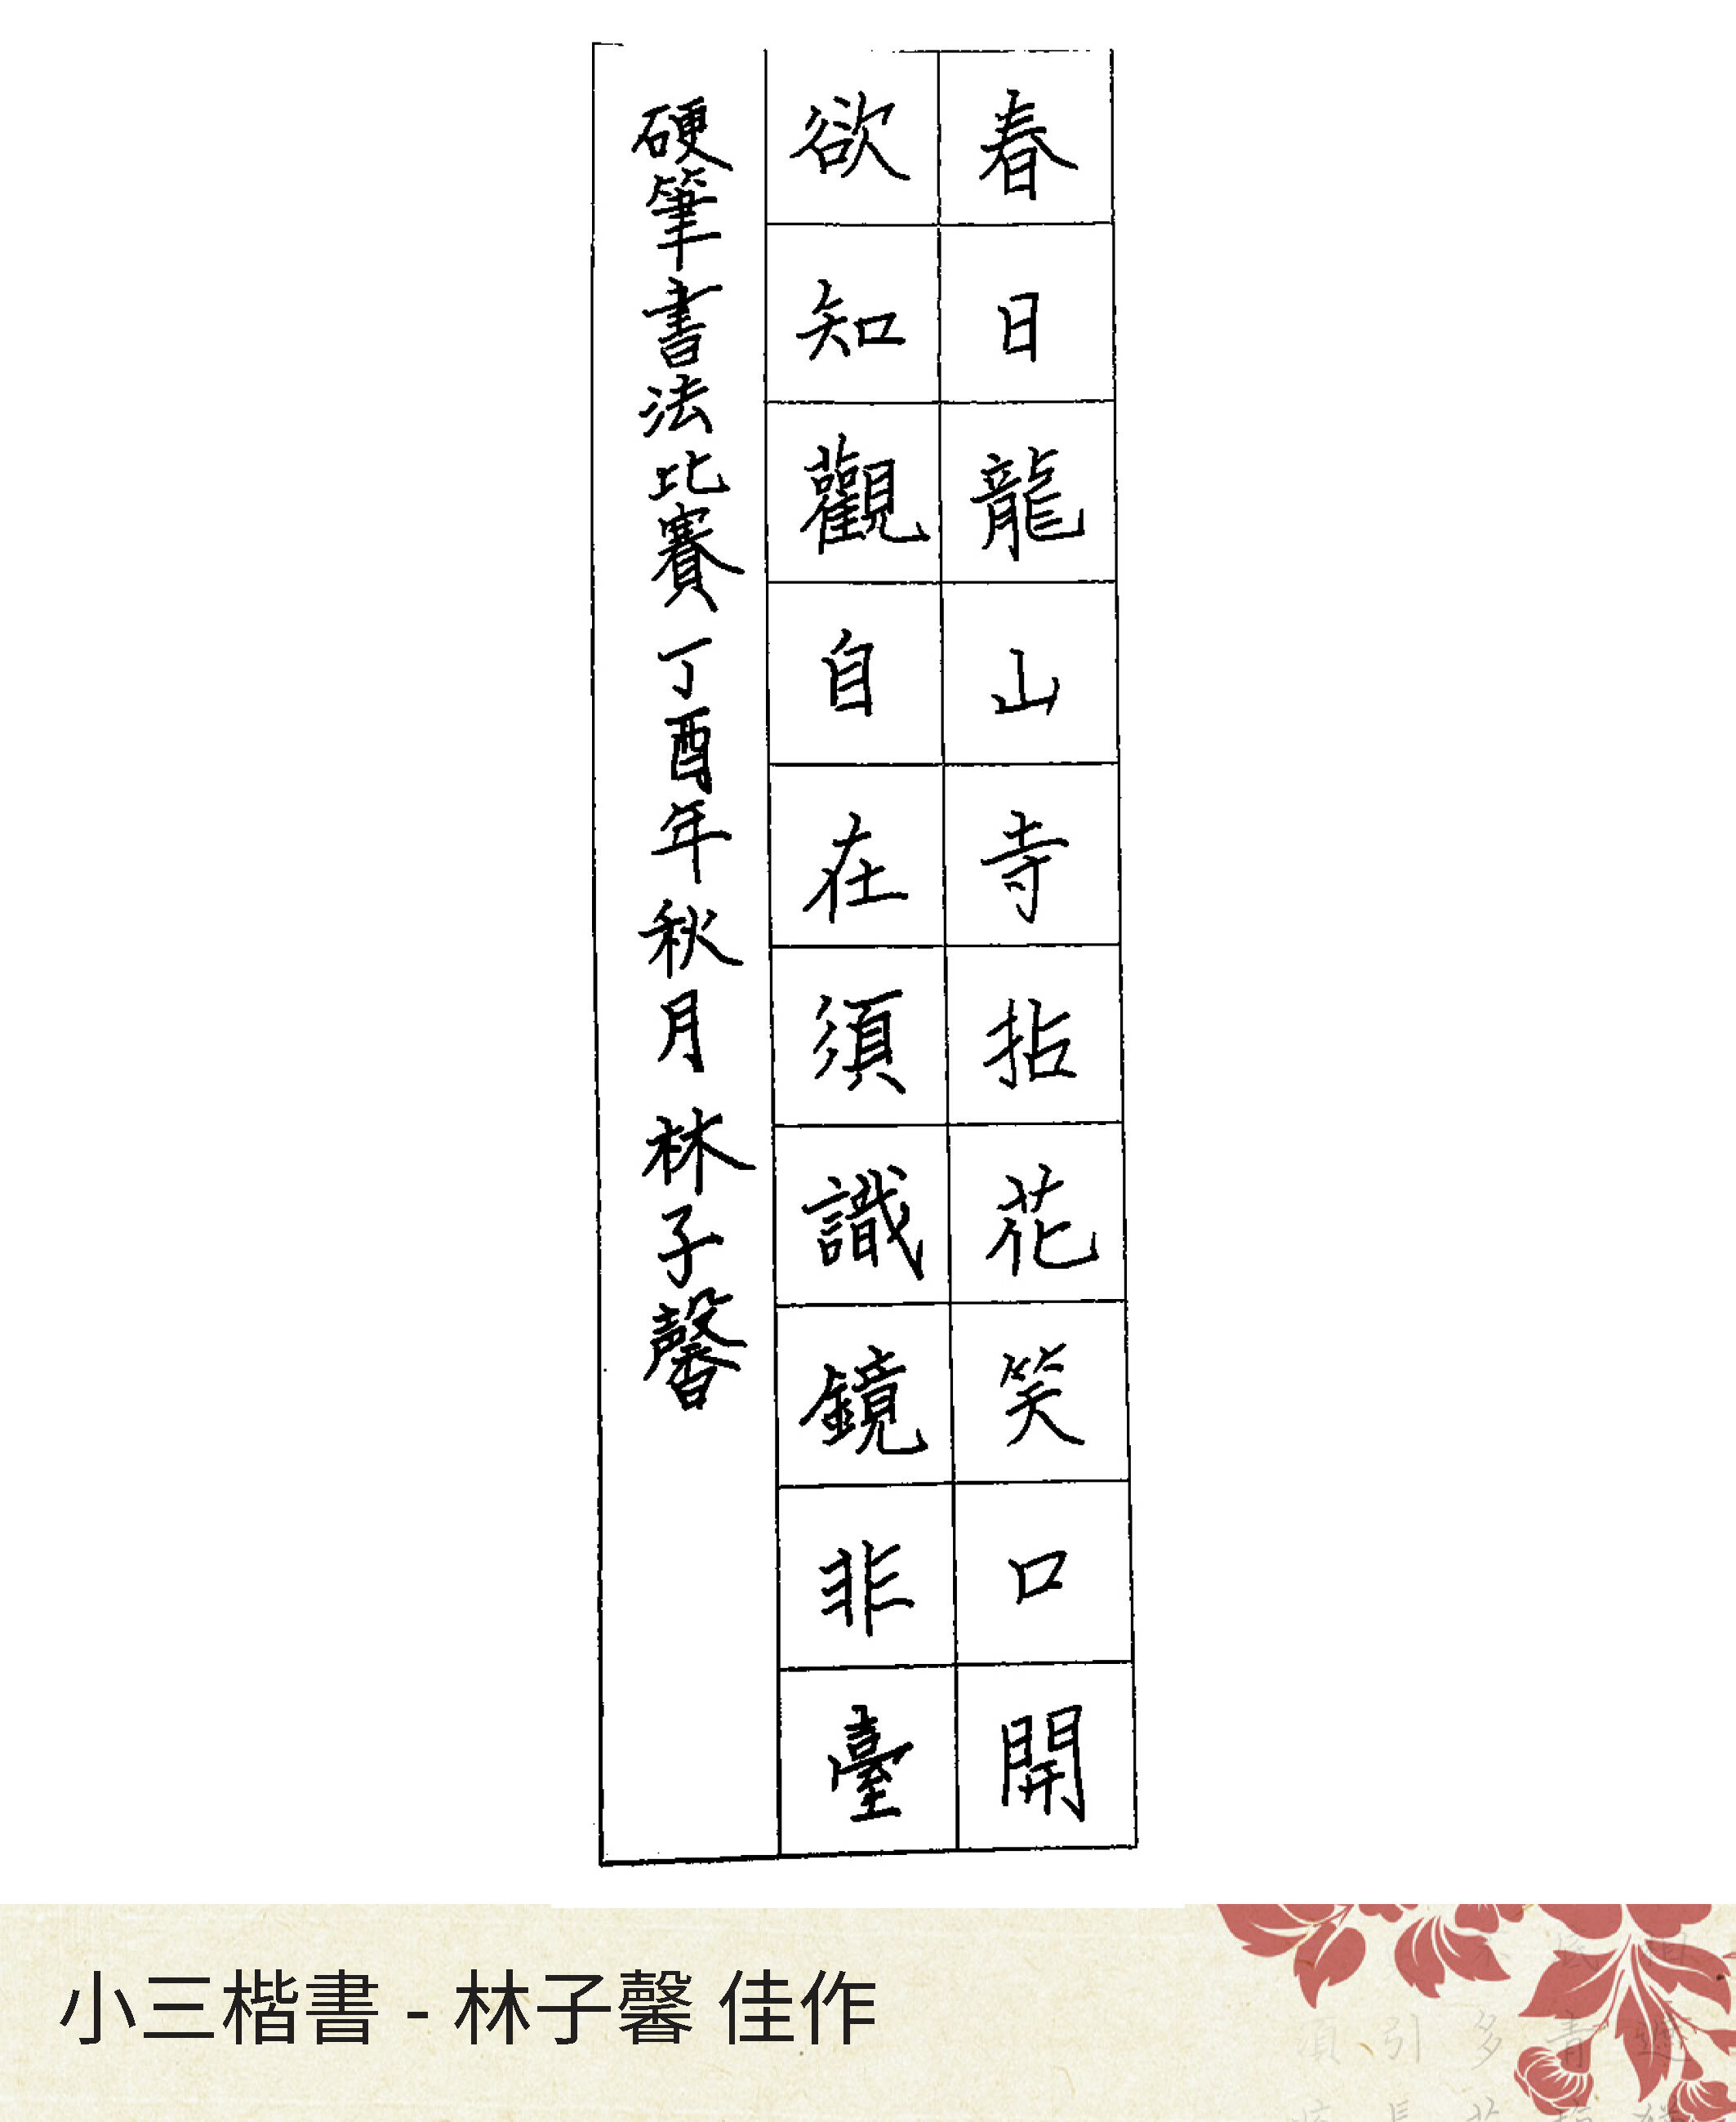 春日龍山寺拈花笑口開
欲知觀自在須識鏡非臺
硬筆書法比賽丁酉年秋月 林子馨
小三楷書 - 林子馨 佳作